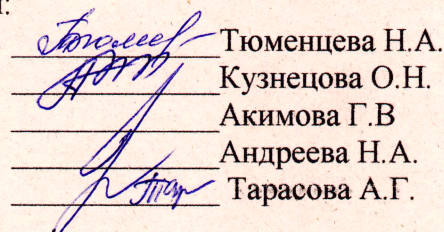 Тюменцева Н.А.
Кузнецова О.Н.
Акимова Г.В
Андреева Н.А.
Тарасова А.Г.